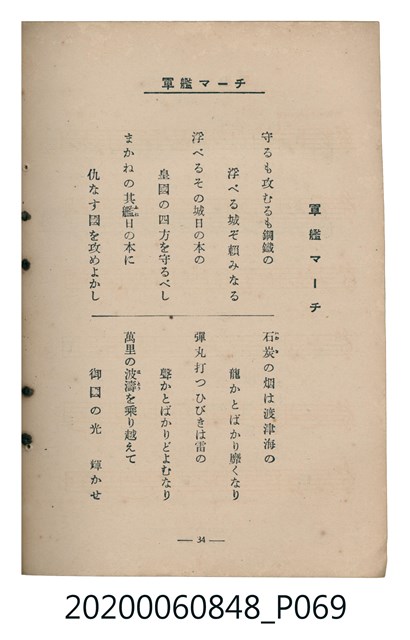 軍艦マーチ
軍艦マーチ
守るも攻むるも鋼鐵の
浮べる城ぞ賴みなる
浮べるその城日の本の
皇國の四方を守るべし
まかねの其艦日の本に
仇なす國を攻めよかし
石炭の烟は渡津海の
龍かとばかり靡くなり
彈丸打つひびきは雷の
聲かとばかりどよむなり
萬里の波濤を乘り越えて
御國の光 輝かせ
— 34 —
20200060848_P069